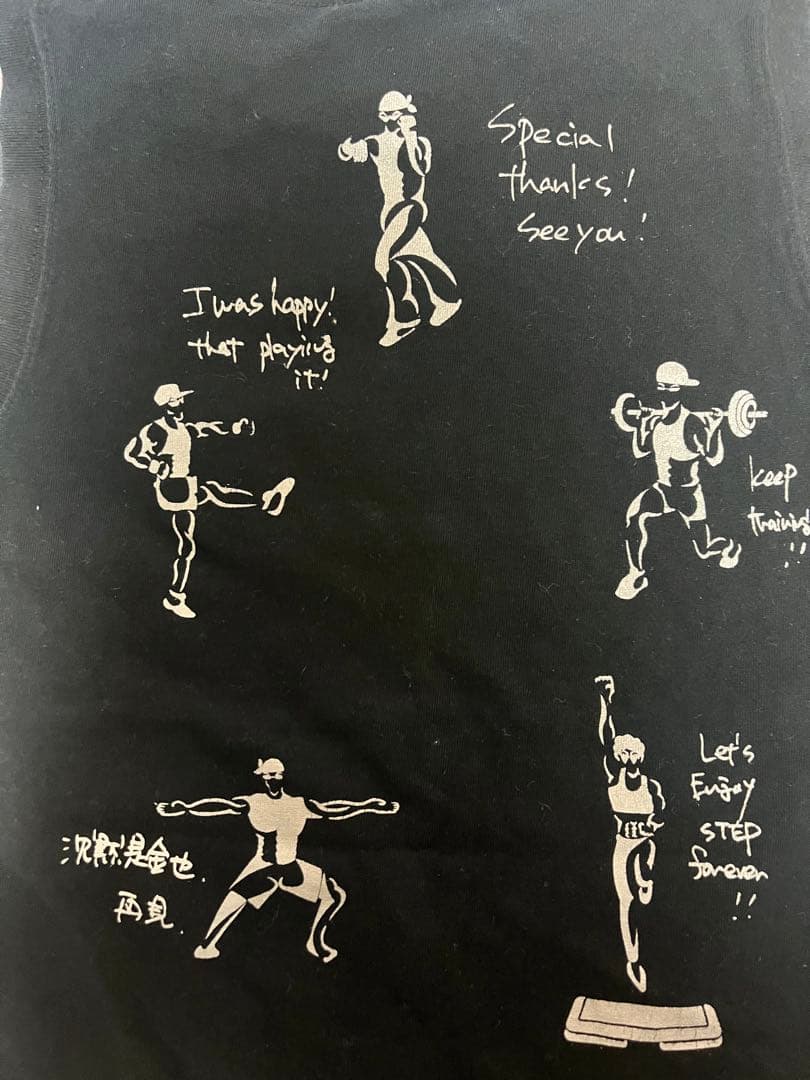 Special
thanks!
See you!
I was happy!
that playing
it!
keep
training
!!
Let's
Enjoy
STEP
forever
!!
沈黙是金也.
再見.